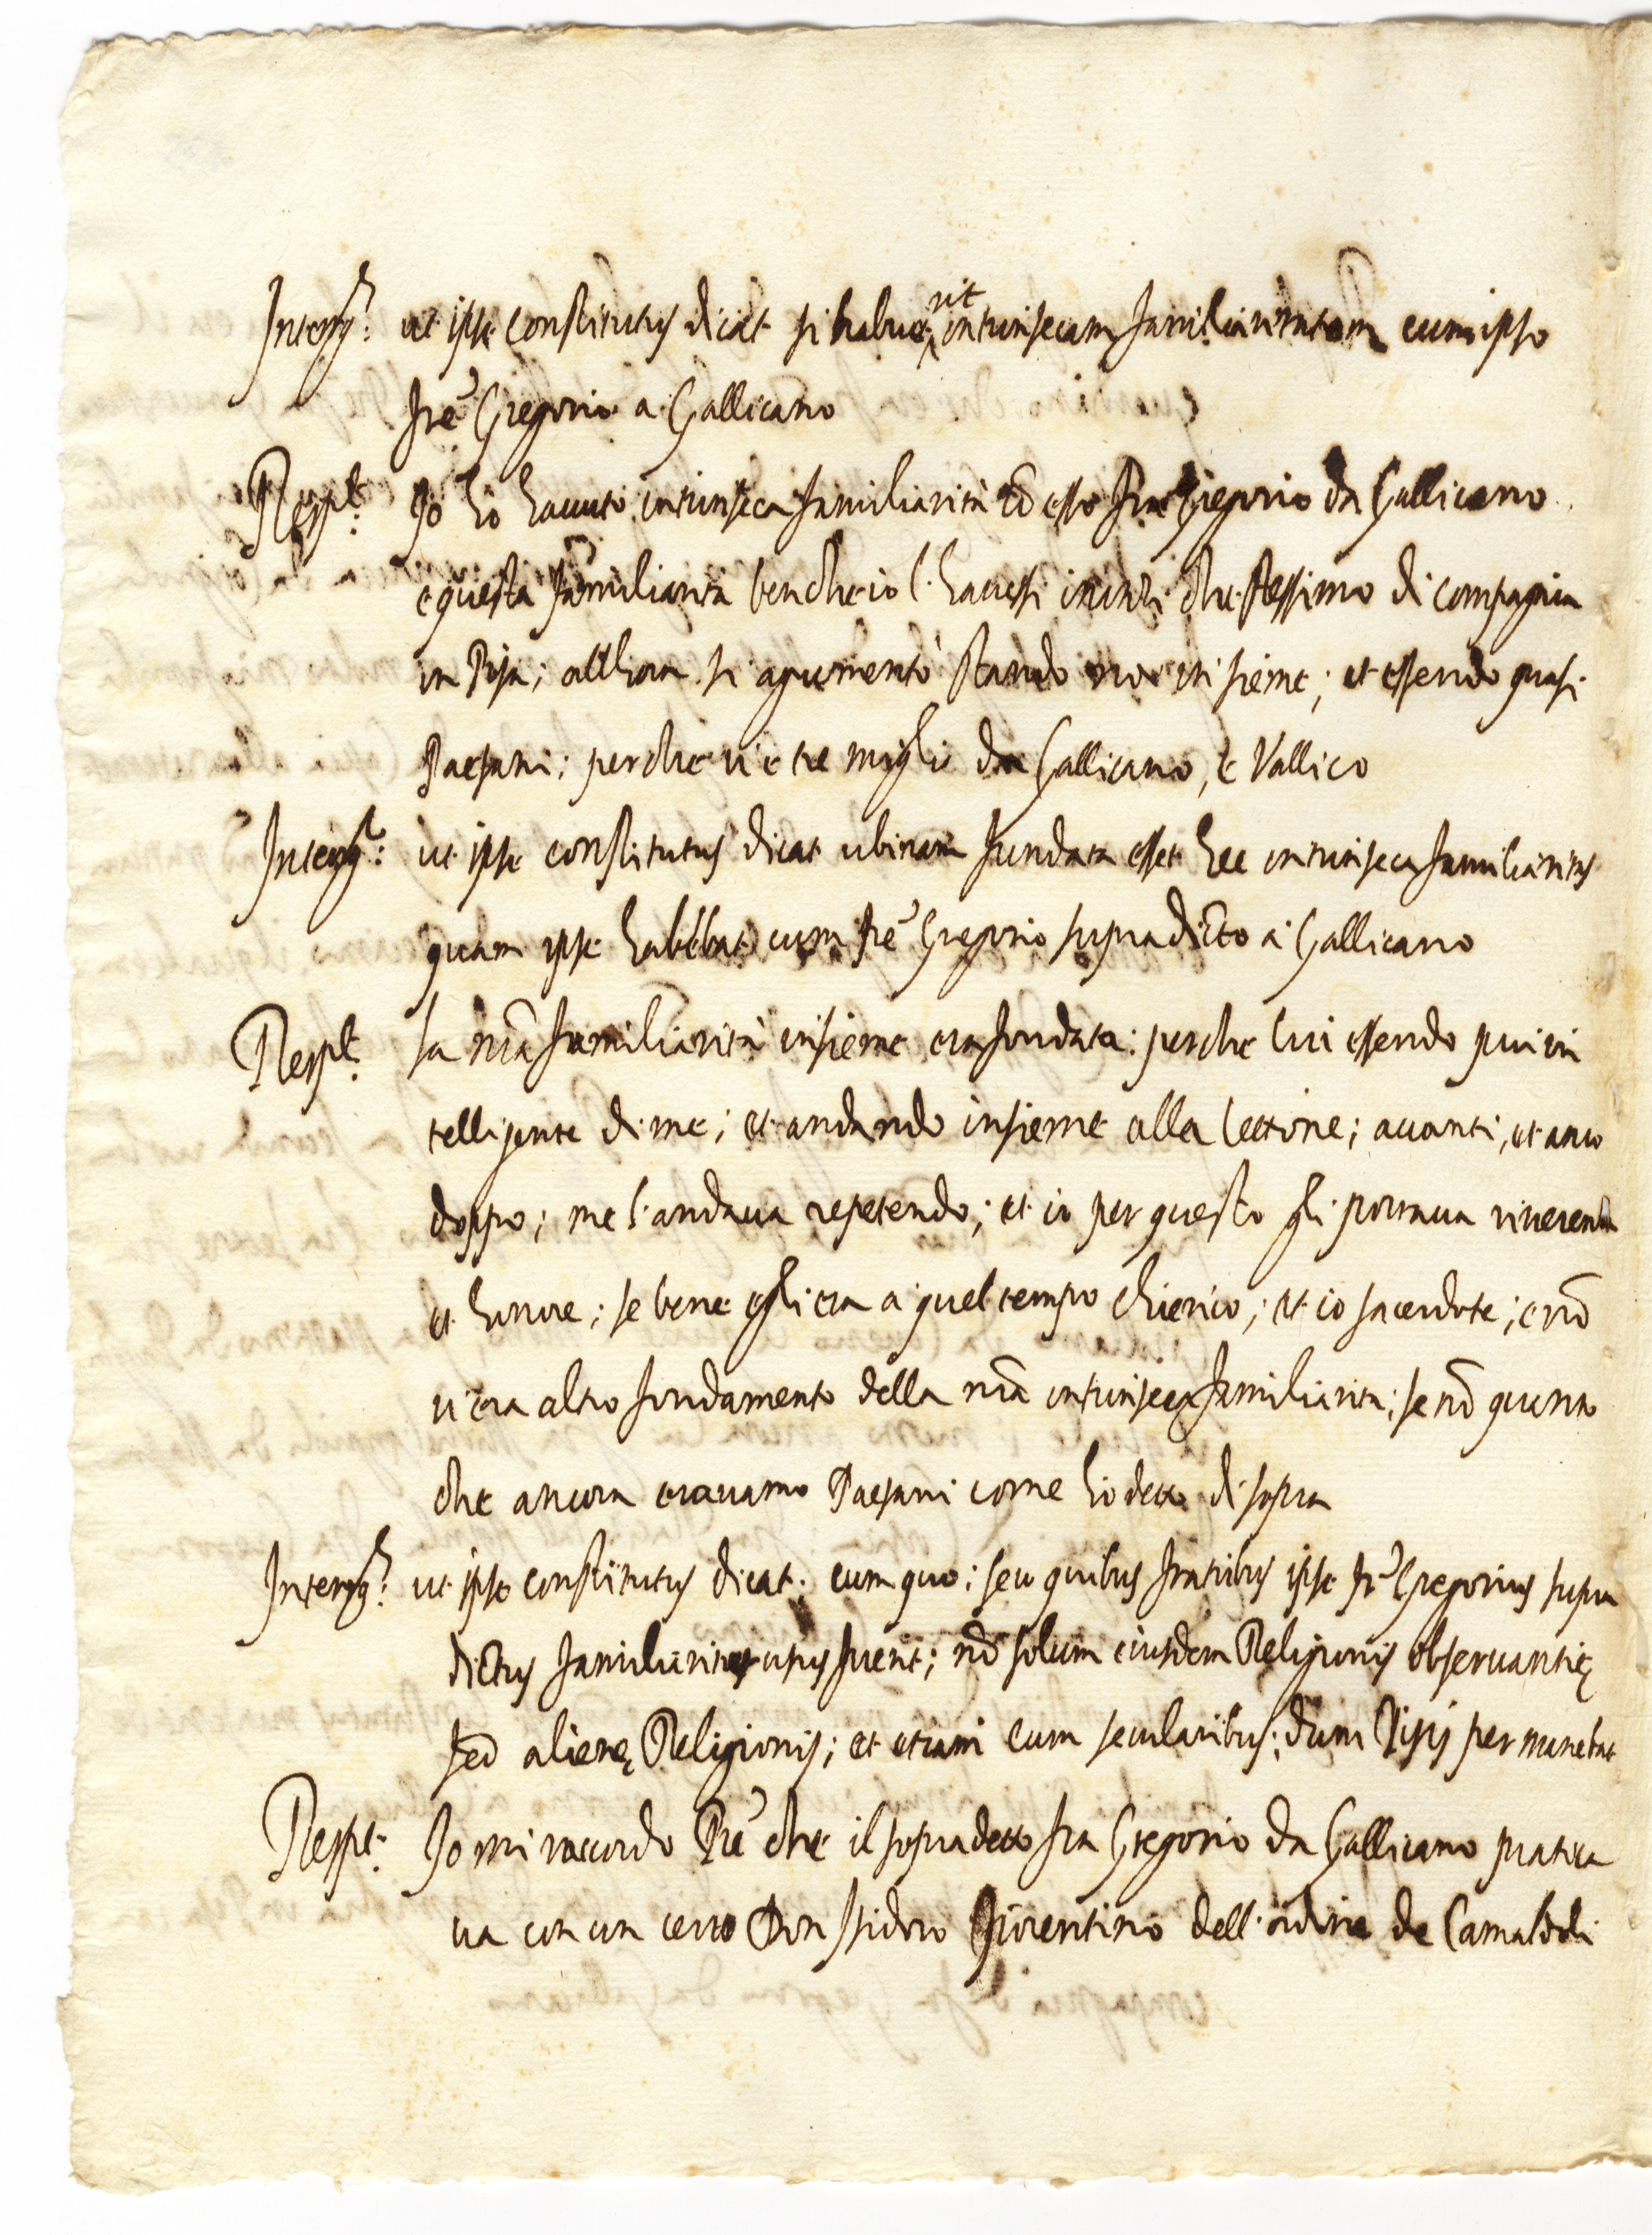 Interrg.s ut ipse constitutus dicat si habuerit intrinsecam familiaritatem cum ipso
fre Gregorio a Gallicano
Respt. Io hò hauuto intrinseca familiarità cō esso fra Gregorio da Gallicano
e questa familiarità benche io l'hauessi inanzi che stessimo di compagnia
in Pisa; allhora si agumentò stando noi insieme; et essendo quasi
Paesani; perche ui è tre miglie da Gallicano, è Vallico
Interrg.s ut ipse constitutus dicat ubinam fundata esset hec intrinseca familiaritas
quam ipse habebat cum fre Gregorio supradicto a Gallicano
Respt. La nrā familiarità insieme era fondata: perche lui essendo più in
telligente di me; et andando insieme alla lettione; auanti, et anco
doppo; me l'andaua repetendo; et io per questo gli portaua riuerentia
et honore; se bene egli era a quel tempo chierico; et io sacerdote; e nō
ui era altro fondamento della nrā intrinseca familiarità; se nō quanto
che ancora erauamo Paesani come hò detto di sopra
Interrg.s ut ipse constitutus dicat. cum quo; seu quibus fratribus ipse fr Gregorius supra
dictus familiaritate usus fuerit; nō solum eiusdem Religionis obseruantię
sed alienę Religionis; et etiam cum secularibus; dum Pisis permanebat
Respt. Io mi raccordo Pre che il sopradetto fra Gregorio da Gallicano pratica
ua con un certo Don Isidoro fiorentino dell'ordine de Camaldoli